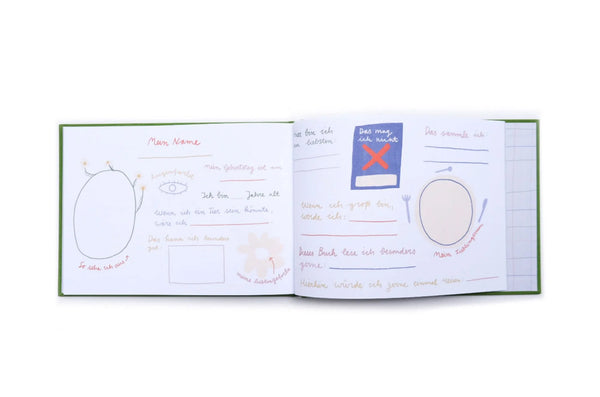 Mein Name
Mein Geburtstag ist am
Augenfarbe
Ich bin Jahre alt
Wenn ich ein Tier sein könnte,
wäre ich
Das kann ich besonders
gut
So sehe ich aus
meine Lieblingsfarbe
bin ich
am liebsten
Das mag
ich nicht
Das sammle ich
Wenn ich groß bin,
werde ich:
Mein Lieblingsessen
Dieses Buch lese ich besonders
gerne
Hierhin würde ich gerne einmal reisen: